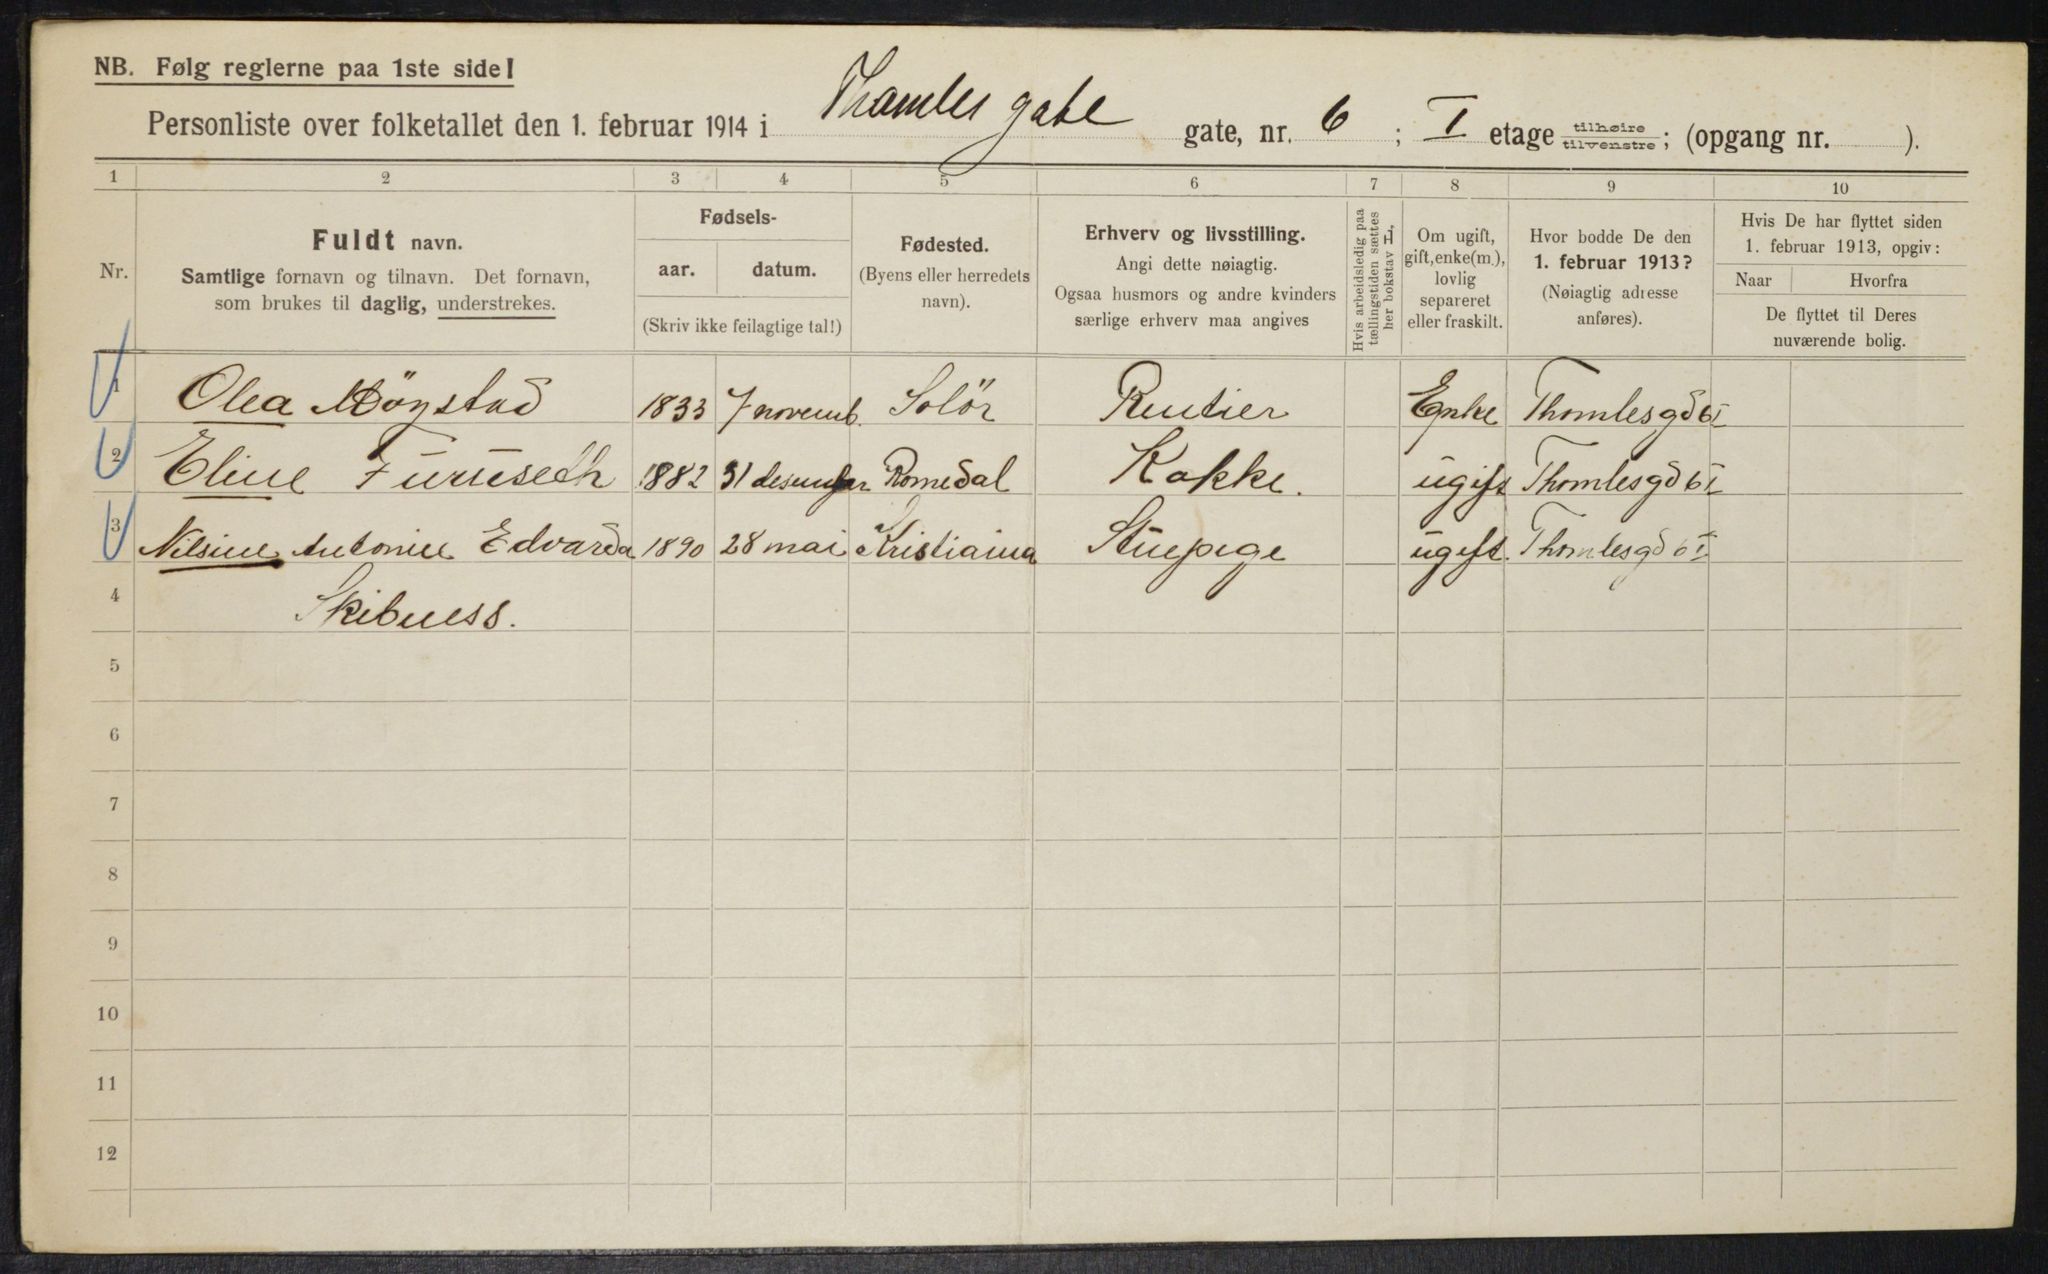 NB. Følg reglerne paa 1ste side!
Personliste over folketallet den 1. februar 1914 i Thomles gate gate, nr. 6 ; I etage tilhøire tilvenstre ; (opgang nr. ).
1 2 3 4 5 6 7 8 9 10
Nr.
Fuldt navn.
Samtlige fornavn og tilnavn. Det fornavn,
som brukes til daglig, understrekes.
Fødsels-
aar. datum.
(Skriv ikke feilagtige tal!)
Fødested.
(Byens eller herredets
navn).
Erhverv og livsstilling.
Angi dette nøiagtig.
Ogsaa husmors og andre kvinders
særlige erhverv maa angives
Hvis arbeidsledig paa
tællingstiden sættes
her bokstav L.
Om ugift,
gift, enke(m.),
lovlig
separeret
eller fraskilt.
Hvor bodde De den
1. februar 1913?
(Nøiagtig adresse
anføres).
Hvis De har flyttet siden
1. februar 1913, opgiv:
Naar Hvorfra
De flyttet til Deres
nuværende bolig.
1 Olea Møystad 1833 7 novemb. Solör Rentier Enke Thomlesgd 6 I
2 Eline Furuseth 1882 31 desember Romedal Kokke. ugift Thomlesgd 6 I
3 Nilsine Antonie Edvarda 1890 28 mai Kristiania Stuepige ugift. Thomlesgd 6 I
4 Skibness.
5
6
7
8
9
10
11
12